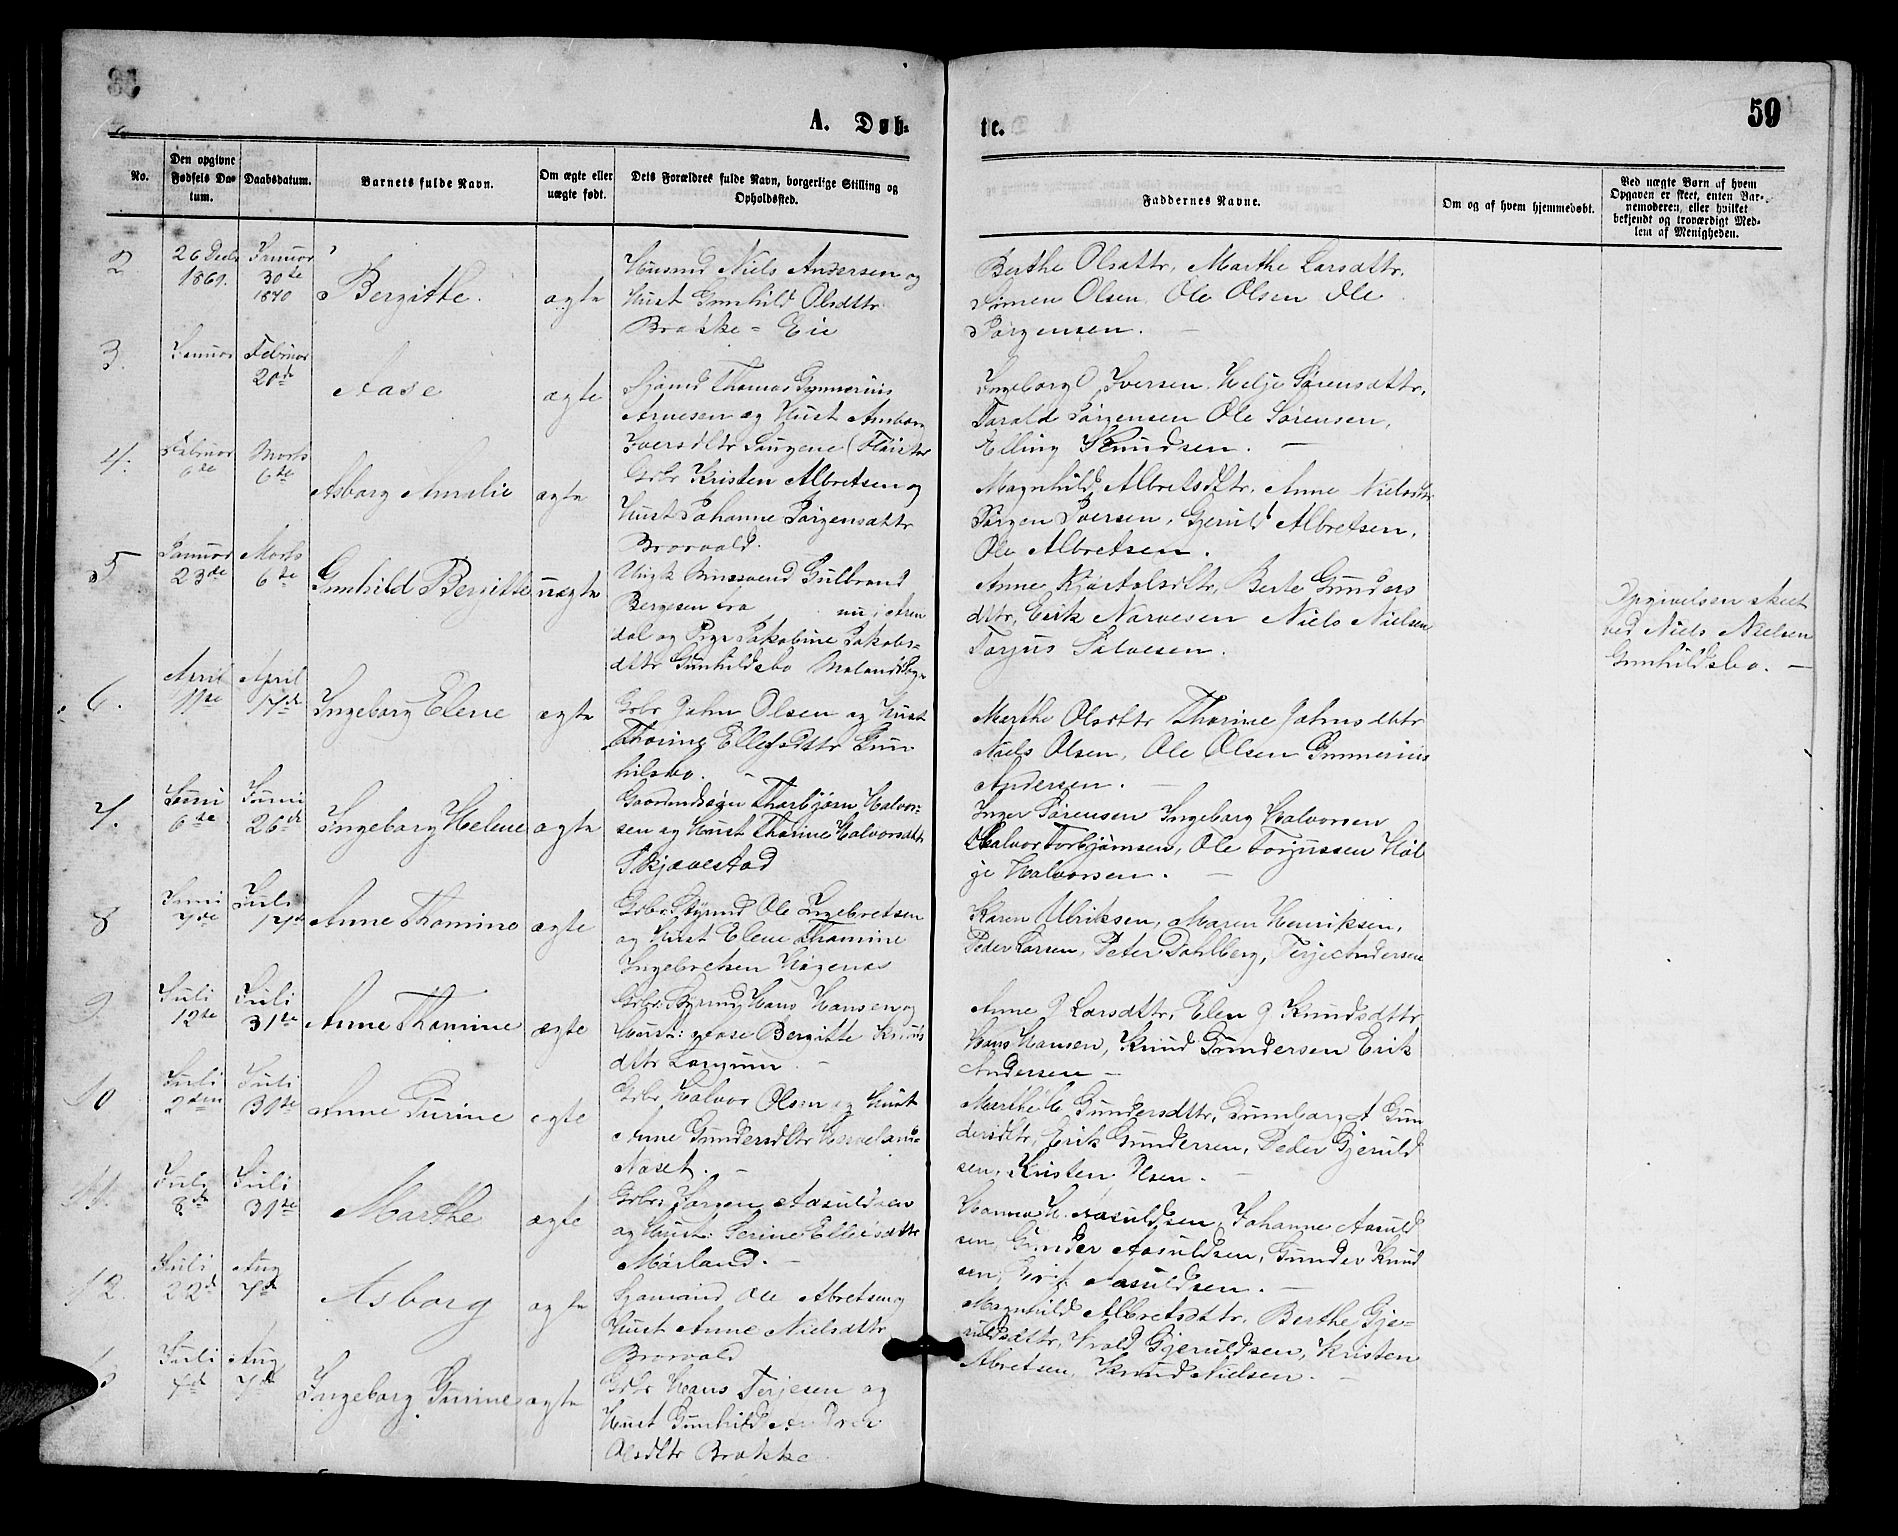 A. Døb-
te.
59
No.
Den opgivne
Fødsels Da-
tum.
Daabsdatum.
Barnets fulde Navn.
Om ægte eller
uægte født.
Dets Forældres fulde Navn, borgerlige Stilling og
Opholdssted.
Faddernes Navne.
Om og af hvem hjemmedøbt.
Ved uægte Børn af hvem
Opgaven er skeet, enten Bar-
nemoderen, eller hvilket
bekjendt og troværdigt Med-
lem af Menigheden.
2
26 Decbr
1869.
Januar
30te
1870
Bergithe.
ægte
Husmd Niels Andersen og
Hust Gunhild Olsdttr
Brøkke-Eie
Berthe Olsdttr, Marthe Larsdttr,
Simen Olsen, Ole Olsen Ole
Jørgensen.
3.
Januar
Februar
20de
Aase
ægte
Sjømd Thomas Gunnerius
Arnesen og Hust Anborg
Iversdttr
Ingeborg Iversen, Helje Sørensdttr,
Tarald Jørgensen Ole Sørensen,
Elling Knudsen.
4.
Februar
6te
Marts
6te
Asborg Amalie
ægte
Grbr Kristen Albretsen og
Hust Johanne Jørgensdttr
Brorvold.
Magnhild Albretsdttr, Anne Nielsdtr
Jørgen Iversen, Gjeruld Albretsen,
Ole Albretsen.
5
Januar
23de
Marts
6te
Gunhild Bergitte
uægte
Ungk Gulbrand
Bergesen fra nu i Aren
dal og Pige Jakobine Jakobs-
dttr Gunhildsbo
Anne Kjøstolsdttr, Berte Gunders
dttr, Erik Narvesen Niels Nielsen
Torjus Salvesen.
Opgivelsen skeet
ved Niels Nielsen
Gunhildsbo.
6.
April
11te
April
17de
Ingeborg Elene
ægte
Grbr John Olsen og Hust
Thorine Ellefsdttr Gun
hilsbo.
Marthe Olsdttr Thorine Johnsdttr
Niels Olsen, Ole Olsen Gunnerius
Andersen.
7.
Juni
6te
Juni
26de
Ingeborg Helene
ægte
Gaardmdsøn Thorbjørn Halvor-
sen og Hust Thorine Halvorsdttr
Skjævestad
Inger Sørensen Ingeborg Halvorsen
Halvor Torbjørnsen, Ole Torjussen Høl
je Halvorsen.
8
Juni
7de
Juli
17de
Anne Thomine
ægte
Grbr Styrmd Ole Ingebretsen
og Hust Elene Thomine
Ingebretsen Høgenes
Karen Ulriksen, Maren Henriksen,
Peder Larsen, Peter Dahlberg, Terje Andersen
9
Juli
12te
Juli
31te
Anne Thomine
ægte
Grbr Styrmd Hans Hansen og
Hust: Aase Bergitte Knuds
dttr Langum
Anne J Larsdttr, Elen J Knudsdttr
Hans Hansen, Knud Gundersen Erik
Andersen
10
Juli
2den
Juli
31te
Anne Turine
ægte
Grbr Halvor Olsen og Hust
Anne Gundersdttr
Næset.
Marthe H Gundersdttr, Gunborg A Gun
dersdttr, Erik Gundersen, Peder Gjeruld
sen, Kristen Olsen.
11.
Juli
8de
Juli
31te
Marthe
ægte
Grbr: Jørgen Aasuldsen
og Hust: Serine Ellefsdttr
Mørland.
Hanna H. Aasuldsen, Johanne Aasuld
sen, Gunder Aasuldsen, Gunder Knud
sen, Erik Aasuldsen.
12.
Juli
22de
Aug
7de
Asborg
ægte
Sjømand Ole Abretsen og
Hust Anne Nielsdttr
Brorvold
Magnhild Albretsdttr, Berthe Gje-
ruldsdttr, Vrold Gjeruldsen, Kristen
Abretsen, Knud Nielsen.
13
Juli
7de
Aug
7de
Ingeborg Gurine
ægte
Grbr Hans Terjesen og
Hust Gunhild
Olsdttr Brøkke